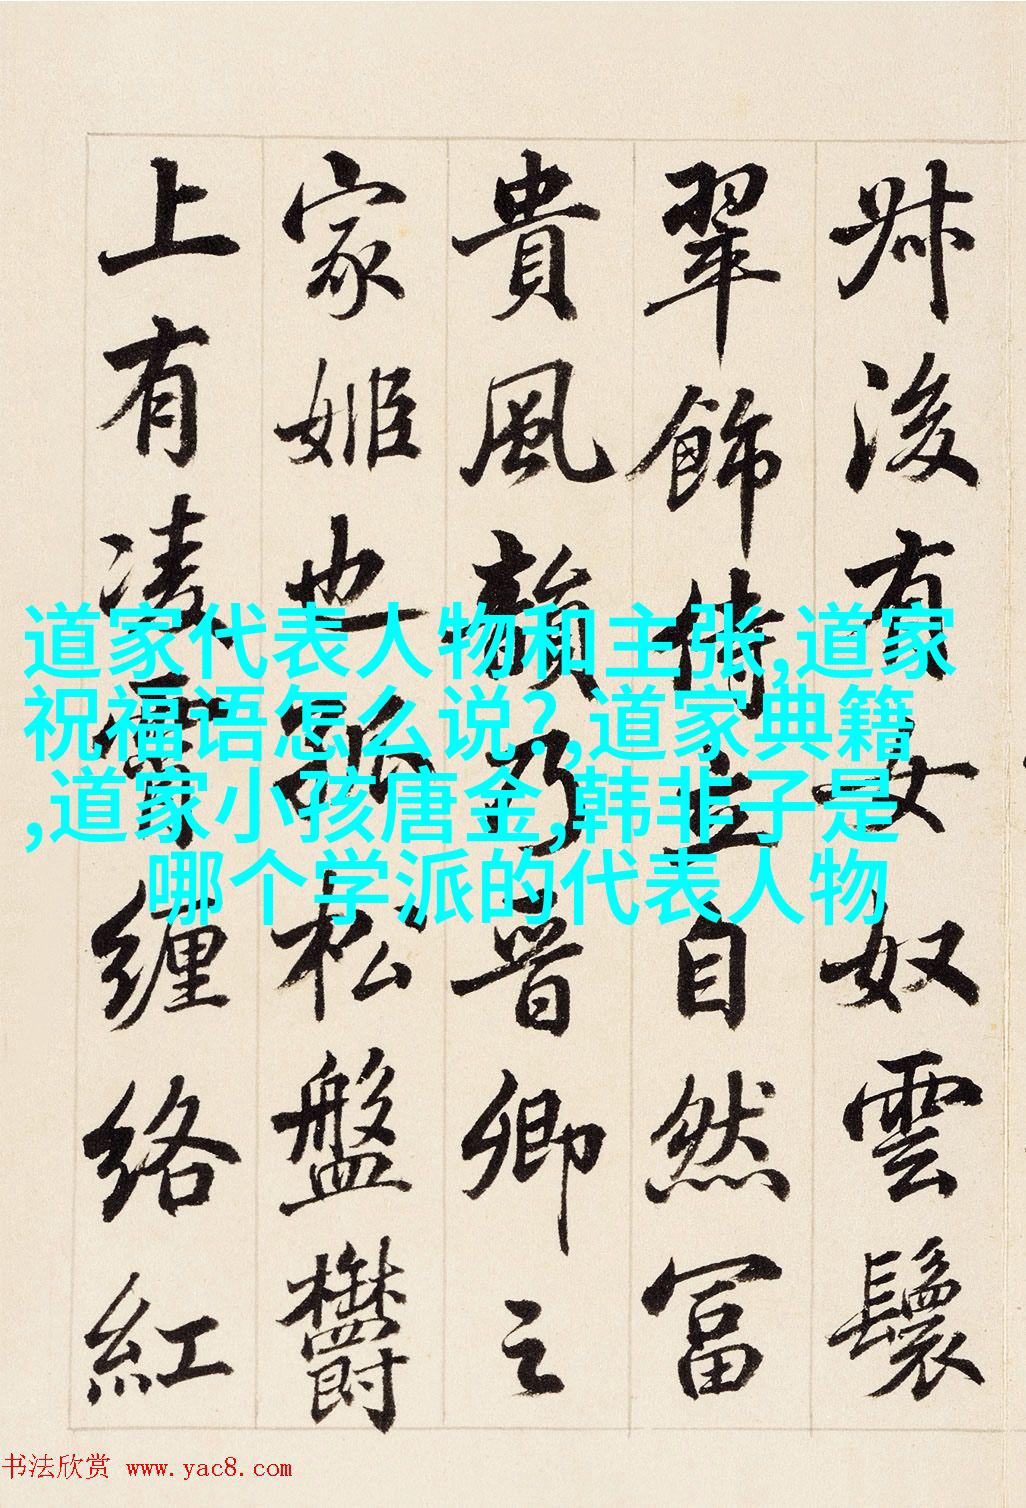 叔後有女奴雲鬟
翠飾侍立自然富
貴風韻乃晉卿之
家姬也孤松盤鬱
上有凌霄纏絡紅
道家代表人物和主张,道家
祝福语怎么说?,道家典籍
,道家小孩唐金,韩非子是
哪个学派的代表人物
书法欣赏 www.yac8.com